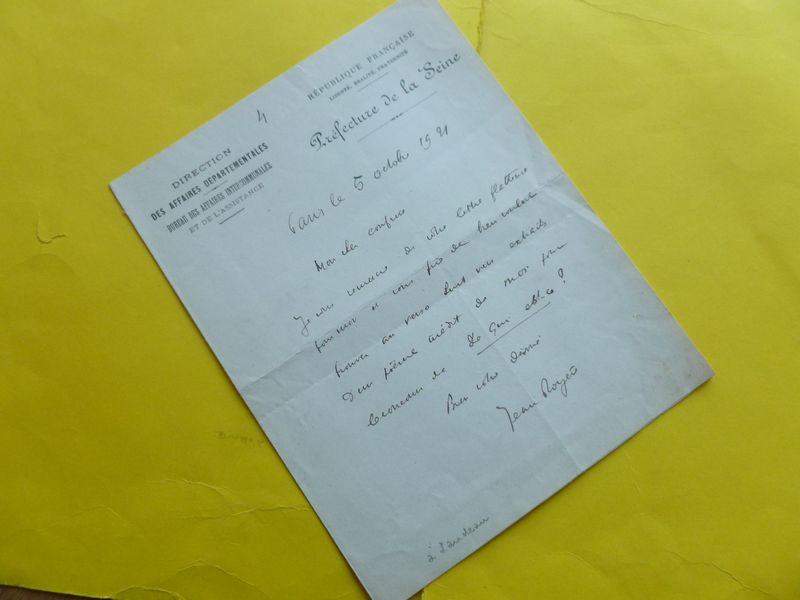 4
RÉPUBLIQUE FRANÇAISE
LIBERTÉ, ÉGALITÉ, FRATERNITÉ
Préfecture de la Seine
DIRECTION
DES AFFAIRES DÉPARTEMENTALES
BUREAU DES AFFAIRES INTERCOMMUNALES
ET DE L'ASSISTANCE
Paris le 5 octobre 1921
Mon cher confrère
Je vous remercie de votre lettre flatteuse
pour moi et vous prie de bien vouloir
trouver au verso
d'un poème inédit de moi pour
le concours de De qui est-ce?
Bien votre dévoué
Jean Royère